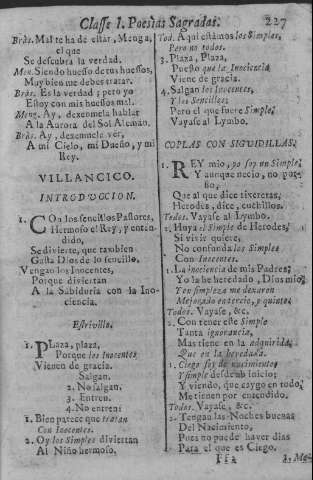 Classe I. Poesias Sagradas. 227
Bràs. Mal te ha de estar, Menga,
el que
Se descubra la verdad.
Men. Siendo huesso de tus huessos,
Muy bien me debes tratar.
Bràs. Es la verdad; pero yo
Estoy con mis huessos mal.
Meng. Ay, dexenmela hablar
A la Aurora del Sol Alemàn.
Bràs. Ay, dexenmele ver,
A mi Cielo, mi Dueño, y mi
Rey.
VILLANCICO.
INTRODUCCION.
1. COn los sencillos Pastores,
Hermoso el Rey, y enten-
dido,
Se divierte, que tambien
Gusta Dios de lo sencillo.
Vengan los Inocentes,
Porque diviertan
A la Sabiduria con la Ino-
ciencia.
Estrivillo.
1. PLaza, plaza,
Porque los Inocentes
Vienen de gracia.
Salgan.
2. No salgan.
3. Entren.
4. No entren:
1. Bien parece que tratan
Con Inocentes.
2. Oy los Simples diviertan
Al Niño hermoso.
Tod. Aqui estàmos los Simples,
Pero no todos.
3. Plaza, Plaza,
Puesto que la Inociencia
Viene de gracia.
4. Salgan los Inocentes,
Y los Sencillos;
Pero el que fuere Simple,
Vayase al Lymbo.
COPLAS CON SIGUIDILLAS.
1. REY mio, yo soy un Simple,
Y aunque necio, no
Que al que dice tixeretas,
Herodes, dice, cuchillos.
Todos. Vayase al Lymbo.
2. Huya el Simple de Herodes,
Si vivir quiere,
No confunda los Simples
Con Inocentes.
1. La inociencia de mis Padres,
Yo la he heredado, Dios mio,
simples a me dexaron
Mejorado en tercio, y quinto.
Todos. Vayase, &c.
2. Con tener este Simple
Tanta ignorancia,
Mas tiene en la adquirida,
Que en la heredada.
1. Ciego soy de nacimiento,
Y simple desde ab initio;
Y viendo, que caygo en todo,
Me tienen por entendido.
Todos. Vayase, &c.
2. Tengan las Noches buenas
Del Nacimiento,
Pues no puede haver dias
Para el que es Ciego.
Ff2